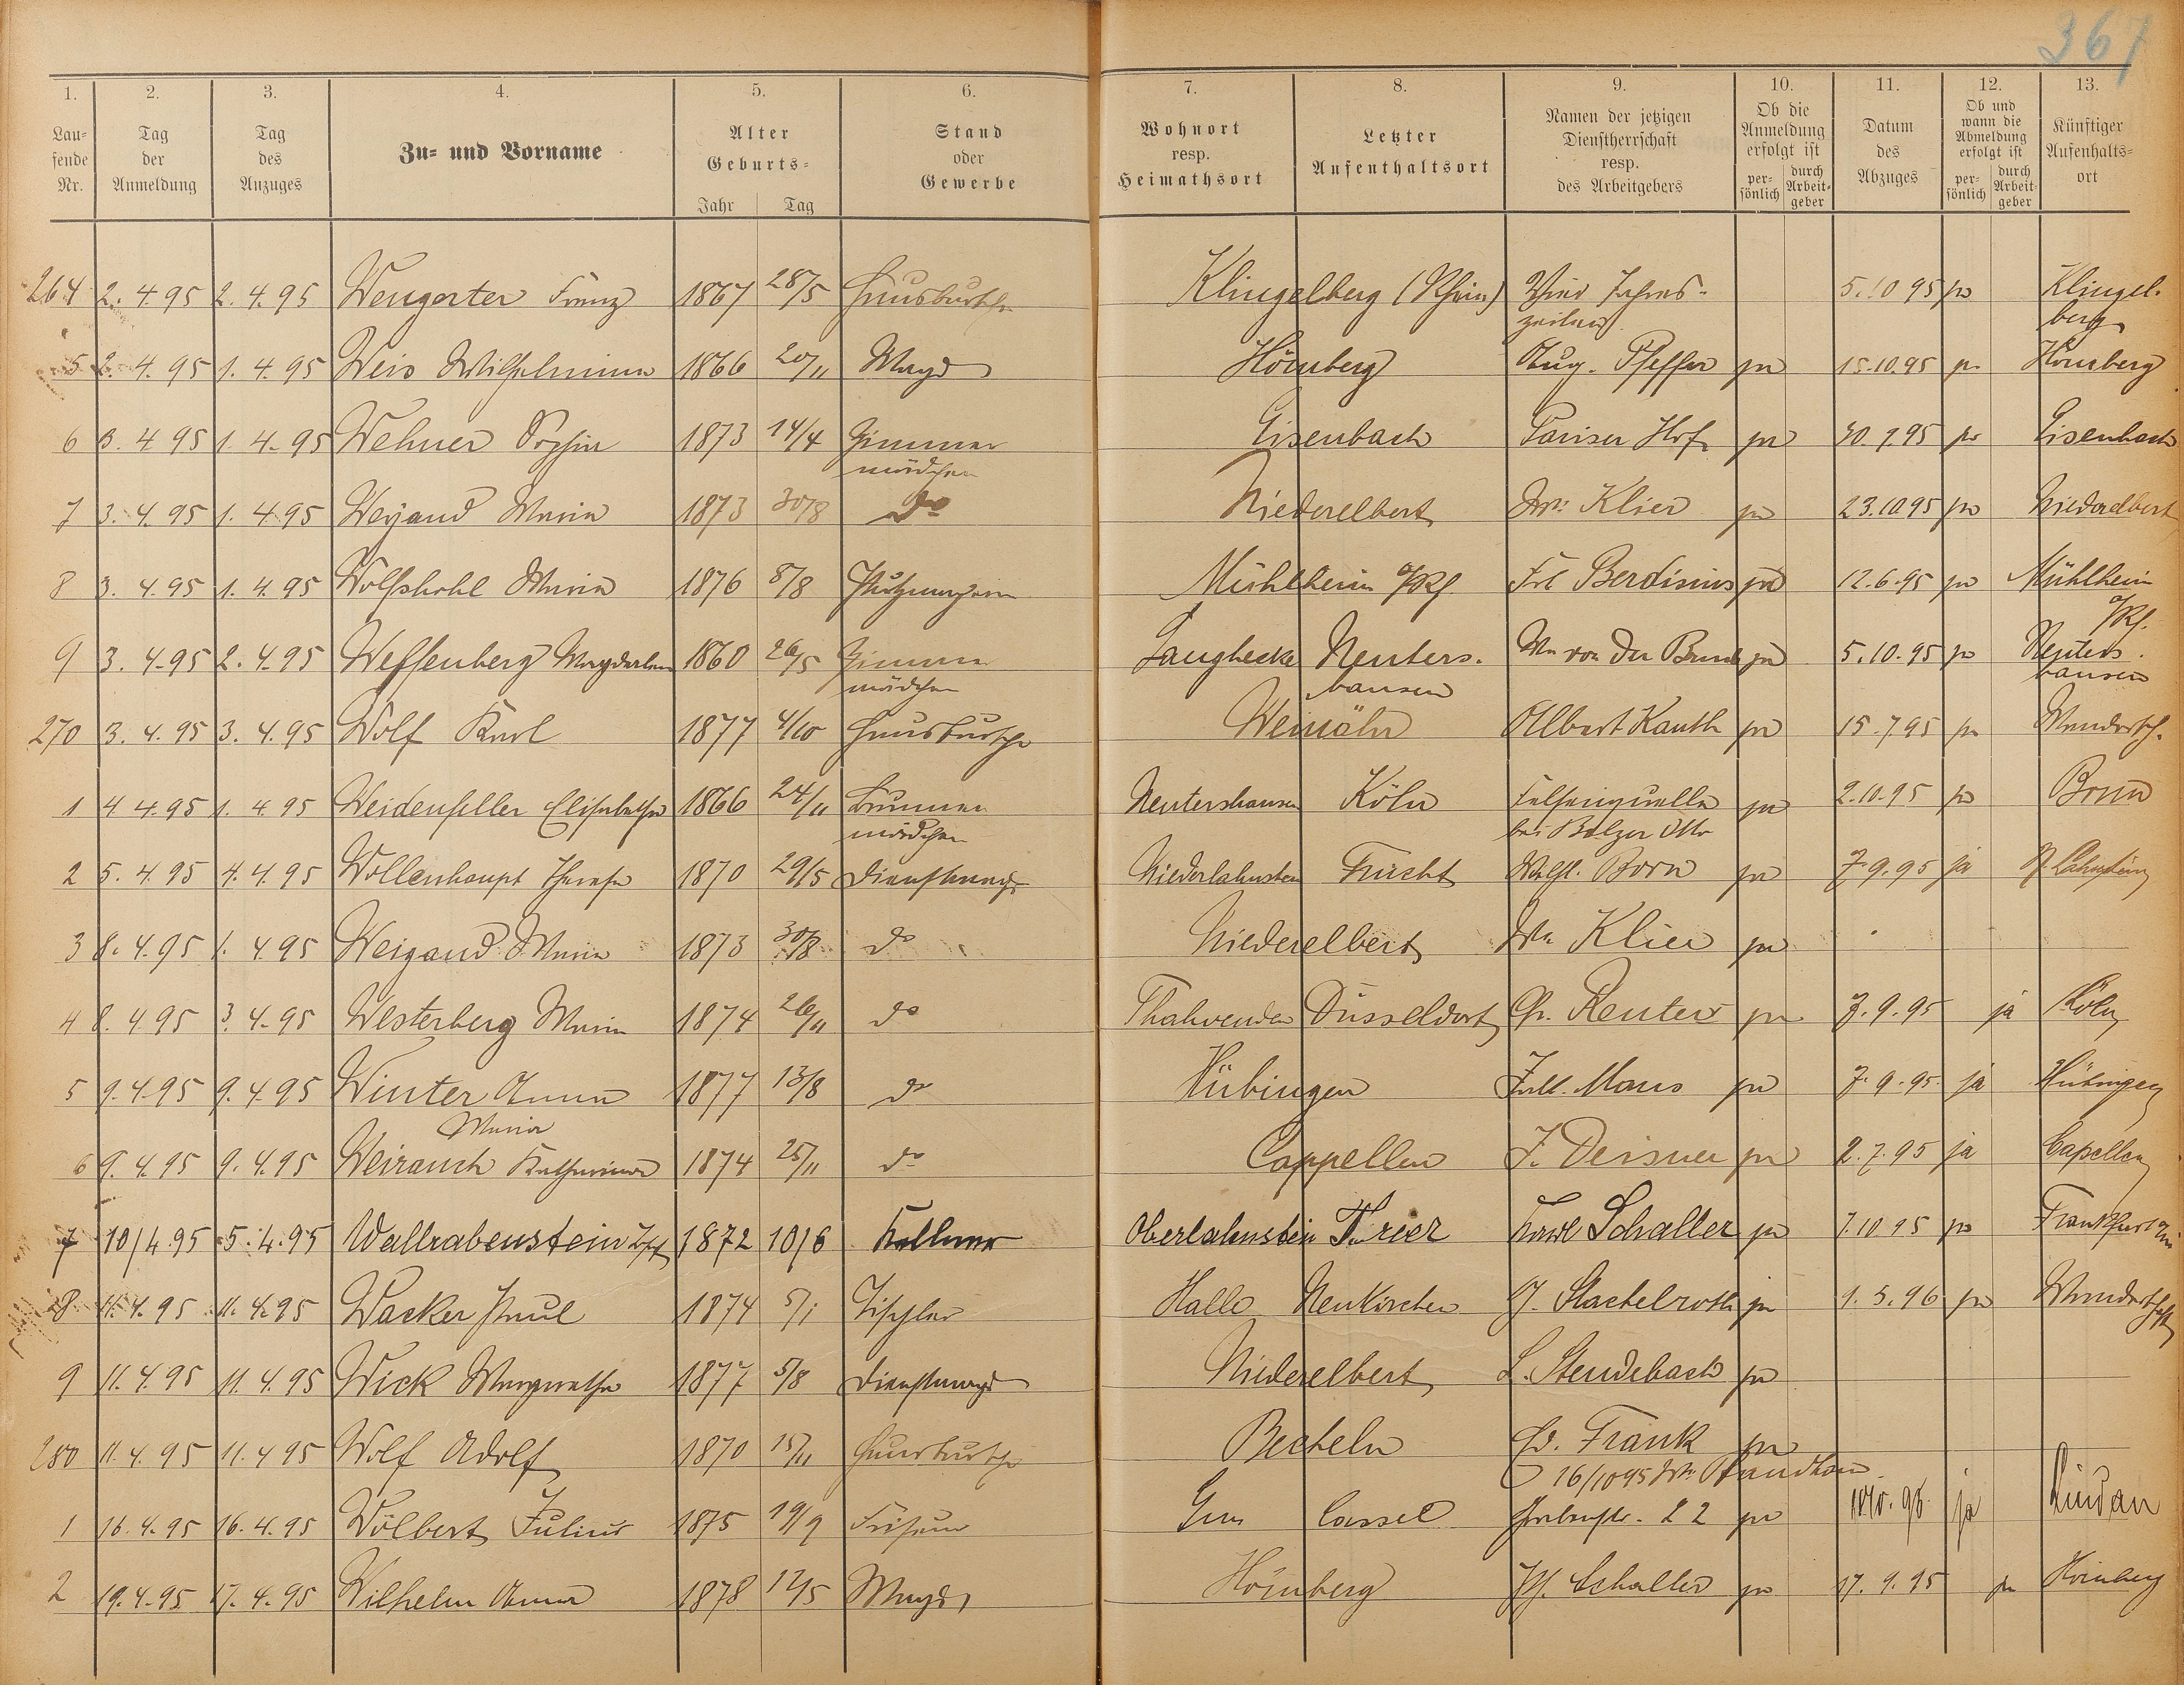 367
1. 2. 3. 4. 5. 6. 7. 8. 9. 10. 11. 12. 13.
Laufende Nr. | Tag der Anmeldung | Tag des Anzuges | Zu- und Vorname | Alter Geburts- Jahr Tag | Stand oder Gewerbe | Wohnort resp. Heimathsort | Letzter Aufenthaltsort | Namen der jetzigen Dienstherrschaft resp. des Arbeitgebers | Ob die Anmeldung erfolgt ist persönlich durch Arbeitgeber | Datum des Abzuges | Ob und wann die Abmeldung erfolgt ist persönlich durch Arbeitgeber | Künftiger Aufenthaltsort
264 2. 4. 95 2. 4. 95 Wengerter Franz 1867 28/5 Hausbursche Klingelberg (Rhein) Vier Jahres- 5. 10 95 ja Klingel-
zeiten berg
5 2. 4. 95 1. 4. 95 Weis Wilhelmine 1866 20/11 Magd Hömberg Aug. Pfeffer ja 15.10.95 ja Hömberg
6 3. 4 95 1. 4. 95 Wehner 1873 14/4 Zimmer Eisenbach Pariser Hof ja 30. 9. 95 ja Eisenbach
mädchen
7 3. 4. 95 1. 4 95 Weyand Maria 1873 30/8 do Niederelbert Klier ja 23.10 95 ja Niederelbert
8 3. 4. 95 1. 4. 95 Wolfskohl Maria 1876 8/8 Mühlheim a/Rh. Frl Berdisius ja 12.6.95 ja Mühlheim
a/Rh.
9 3. 4. 95 2. 4. 95 Weffenberg Magdalena 1860 26/5 Zimmer Langhecke Nenters- von der ja 5. 10. 95 ja Nenters-
mädchen hausen hausen
270 3. 4. 95 3. 4. 95 Wolf Karl 1877 4/10 Hausbursche Weinähr Albert Kauth ja 15. 7 95 ja Wandersch.
1 4 4. 95 1. 4. 95 Weidenfeller Elisabetha 1866 24/11 Brunnen Nentershausen Köln Felsenquelle ja 2. 10. 95 ja Bonn
mädchen bei Balzer Otto
2 5. 4. 95 4. 4. 95 Wollenhaupt Therese 1870 29/5 Dienstmagd Niederlahnstein Frücht Wilh. Born ja 7. 9. 95 ja N. Lahnstein
3 8. 4. 95 1. 4 95 Weigand Maria 1873 30/8 do Niederelbert Klier ja
4 8. 4 95 3. 4. 95 Westerberg Maria 1874 26/11 do Thalwenden Düsseldorf Reuter ja 7. 9. 95 ja Köln
5 9. 4. 95 9. 4. 95 Winter Anna 1877 13/8 do Hübingen Maus ja 7. 9. 95 ja Hübingen
Maria
6 9. 4. 95 9. 4. 95 Weirauch Katharina 1874 25/11 do Cappellen J. Deisner ja 2. 7. 95 ja Capellen
7 10/4. 95 5. 4. 95 Wallrabenstein Jos. 1872 10/6 Kellner Oberlahnstein Trier Karl Schaller ja 7. 10 95 ja Frankfurt a/M
8 11. 4. 95 11. 4. 95 Wacker Paul 1874 5/1 Tischler Halle Neukirchen Stachelroth ja 1. 5. 96 ja Wanderschaft
9 11. 4. 95 11. 4. 95 Wick Margaretha 1877 5/8 Dienstmagd Niederelbert L. Stendebach ja
280 11. 4. 95 11. 4 95 Wolf Adolf 1870 15/11 Hausbursche Becheln Frank ja
16/10 95
1 16. 4. 95 16. 4. 95 Wölbert Julius 1875 19/9 Friseur Ems Cassel 22 ja 10. 96 ja Lindau
2 19. 4. 95 17. 4. 95 Wilhelm Anna 1878 12/5 Magd Hömberg Schaller ja 17. 9. 95 ja Hömberg